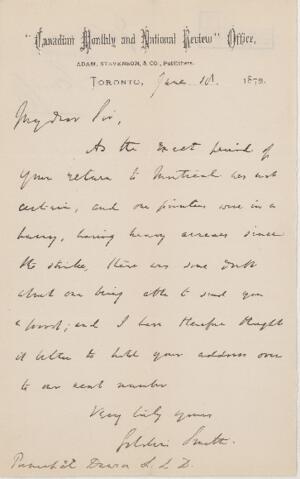 "Canadian Monthly and National Review" Office,
ADAM, STEVENSON, & CO., Publishers.
TORONTO, June 10th 1872.
My dear Sir,
As the exact period of
your return to Montreal was not
certain, and our printers were in a
hurry, having heavy arrears since
the strike, there was some doubt
about our being able to send you
a proof; and I have therefore thought
it better to hold your address over
to our next number
Very truly yours
Goldwin Smith.
Principal Dawson L. L. D.